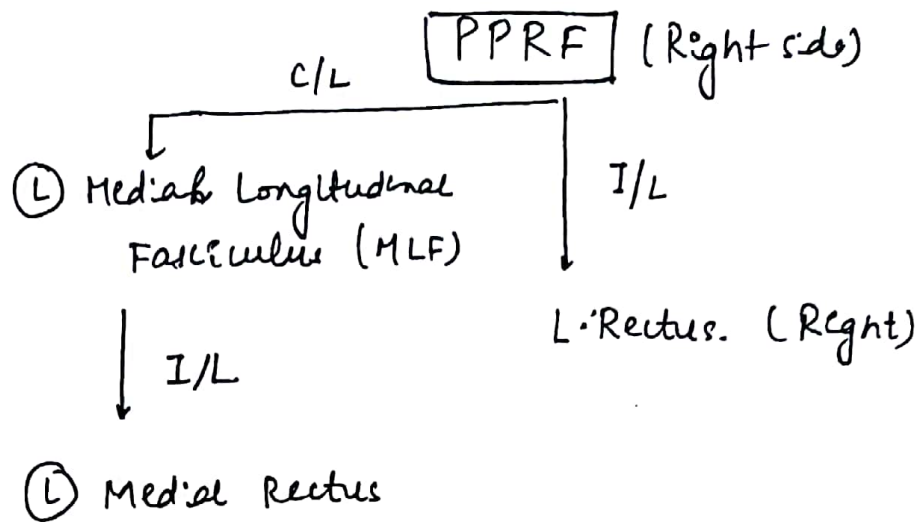 PPRF (Right side)
C/L
Ⓛ Medial Longitudinal
Fasciculus (MLF)
I/L
L. Rectus. (Right)
I/L
Ⓛ Medial Rectus